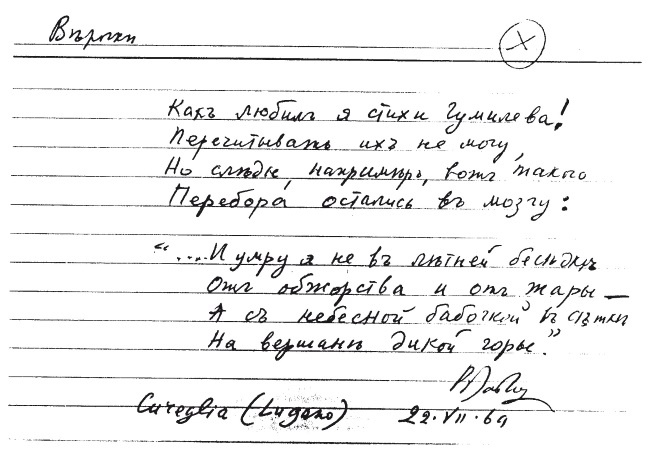 Вѣрочки
X
Какъ любилъ я стихи Гумилева!
Перечитывать ихъ не могу,
Но слѣды, напримѣръ, вотъ такого
Перебора остались въ мозгу:
"....И умру я не въ лѣтней бесѣдкѣ
Отъ обжорства и отъ жары —
А съ небесной бабочкой въ сѣткѣ
На вершинѣ дикой горы."
Cureglia (Lugano)
22.VII.69